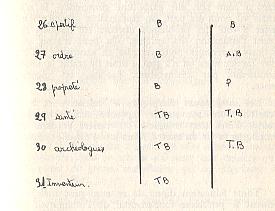 26 sportif B B
27 ordre B A.B
28 propreté B P
29 santé TB T.B
30 archéologue TB T.B
31 Inventeur. TB